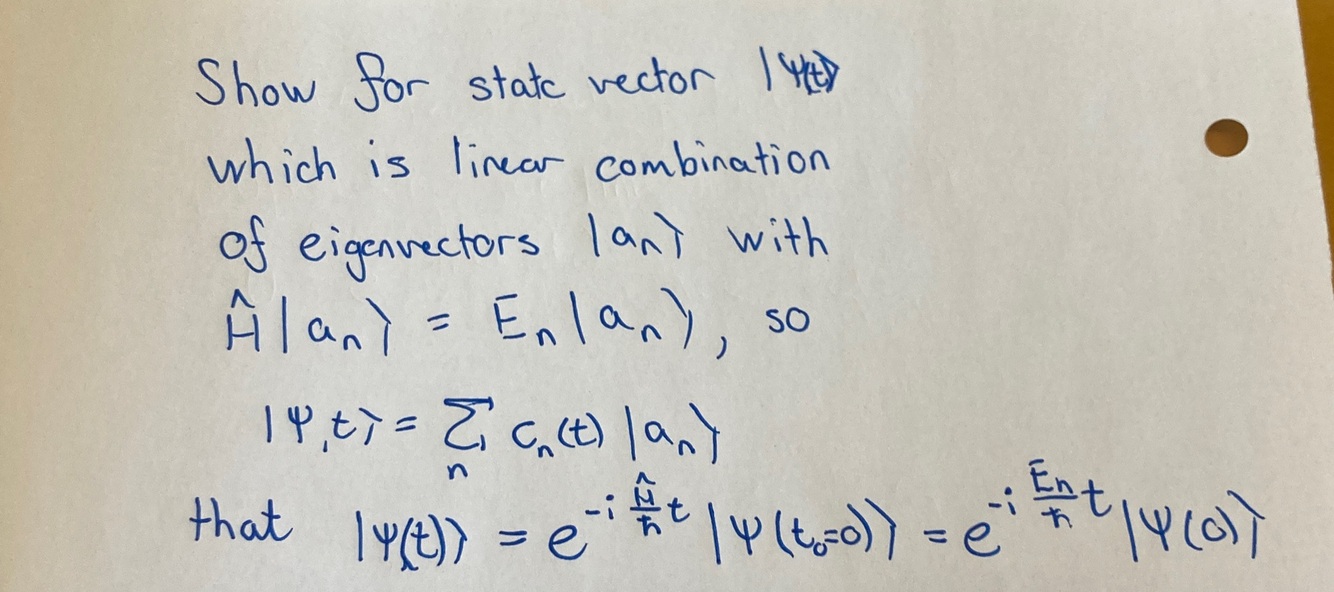 Show for state vector |Ψ(t)⟩
which is linear combination
of eigenvectors |aₙ⟩ with
Ĥ|aₙ⟩ = Eₙ|aₙ⟩, so
|Ψ,t⟩ = ∑ₙ cₙ(t) |aₙ⟩
that |Ψ(t)⟩ = e^{-i Ĥ/ħ t} |Ψ(t₀=0)⟩ = e^{-i Eₙ/ħ t} |Ψ(0)⟩